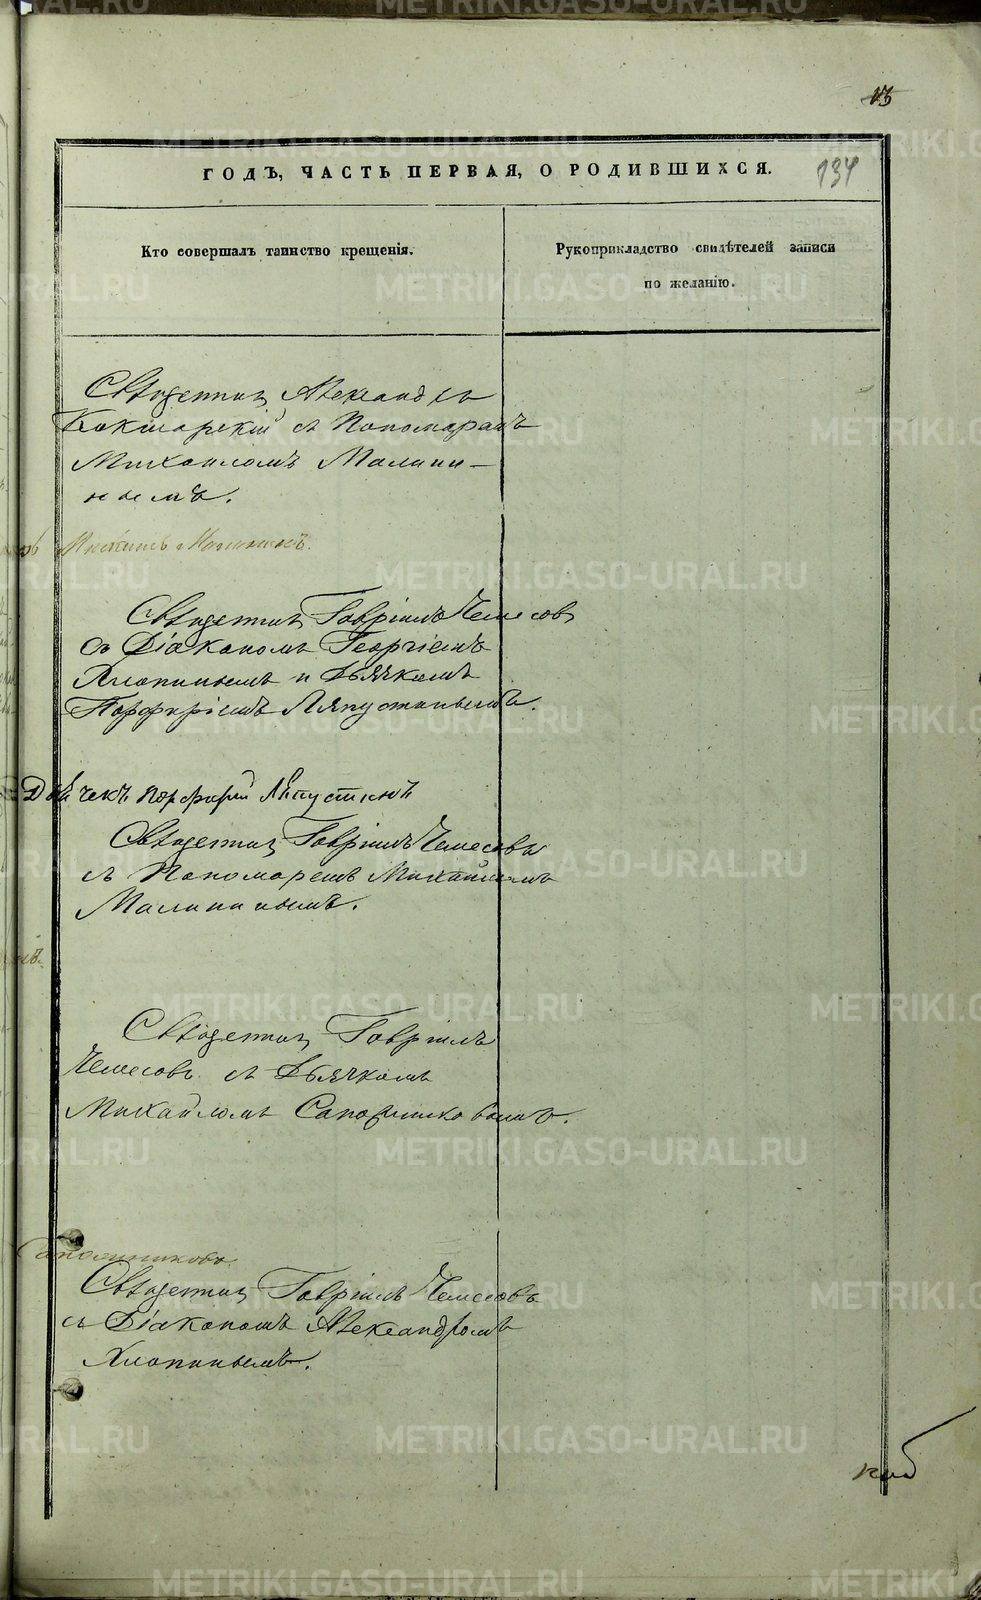 13
ГОДЪ, ЧАСТЬ ПЕРВАЯ, О РОДИВШИХСЯ.
134
Кто совершалъ таинство крещенія.
Рукоприкладство свидѣтелей записи
по желанію.
Священникъ Александръ
Кокшарскій съ Пономаремъ
Михаиломъ Малини-
нымъ.
Малининъ.
Священникъ Гавріилъ Чемесовъ
съ Діакономъ Георгіемъ
Хлопинымъ и Дьячкомъ
Порфиріемъ Ляпустинымъ.
Дьячекъ Порфирій Ляпустинъ
Священникъ Гавріилъ Чемесовъ
съ Пономаремъ Михаиломъ
Малининымъ.
Священникъ Гавріилъ
Чемесовъ съ Дьячкомъ
Михайломъ Сапожниковымъ.
Сапожниковъ.
Священникъ Гавріилъ Чемесовъ
съ Діакономъ Александромъ
Хлопинымъ.
METRIKI.GASO-URAL.RU